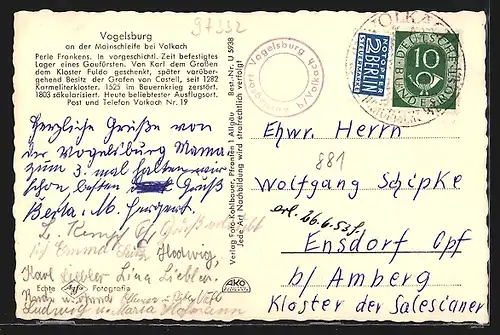 97332
Vogelsburg
an der Mainschleife bei Volkach
Perle Frankens. In vorgeschichtl. Zeit befestigtes
Lager eines Gaufürsten. Von Karl dem Großen
dem Kloster Fulda geschenkt, später vorüber-
gehend Besitz der Grafen von Castell, seit 1282
Karmeliterkloster. 1525 im Bauernkrieg zerstört.
1803 säkularisiert. Heute beliebtester Ausflugsort.
Post und Telefon Volkach Nr. 19
Herzliche Grüße von
der Vogelsburg Mama
zum 3. mal halten wir
schon besten Gruß
Berta u. M. Hergert.
L. Kempf
Emma Hedwig,
Karl Liebler Lina Liebler
Echte Agfa Fotografie
Ludwig u. Maria Hofmann
Verlag Foto-Kohlbauer, Pfronten 1 Allgäu Best.-Nr. U 5938
Jede Art Nachbildung wird strafrechtlich verfolgt
AKO
Vogelsburg
VOLKACH
NOTOPFER
2 BERLIN
STEUERMARKE
DEUTSCHE
BUNDESPOST
10
Ehrw. Herrn
881
Wolfgang Schipke
erl. 26.6.53
Ensdorf Opf
b/ Amberg
Kloster der Salesianer